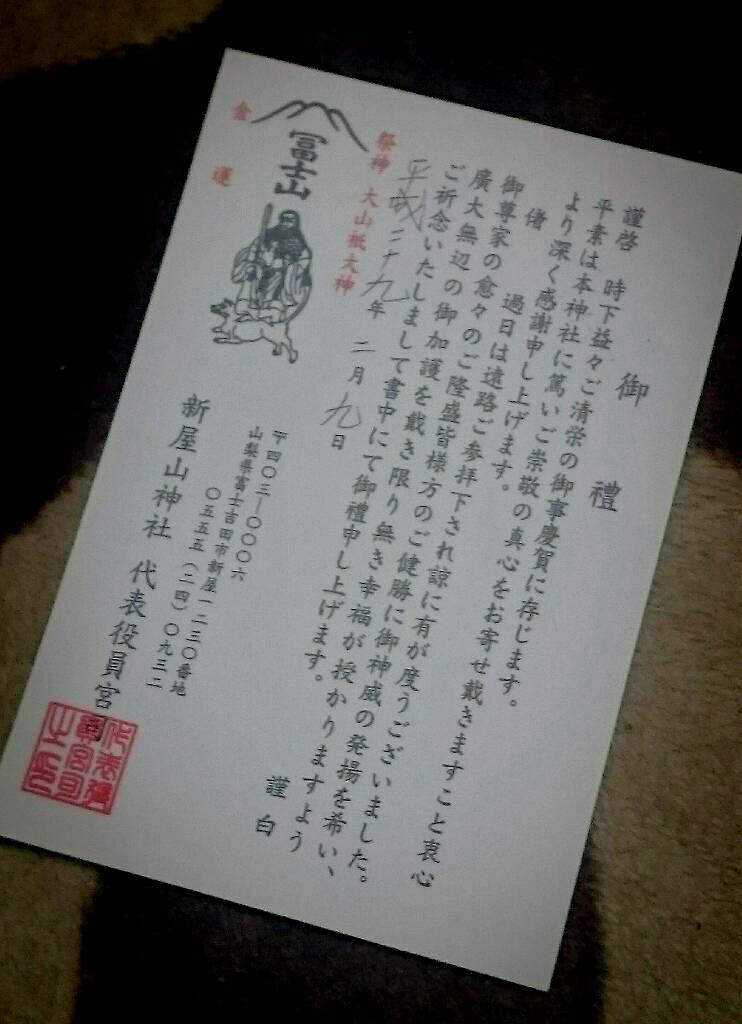 御禮
謹啓 時下益々ご清栄の御事慶賀に存じます。
平素は本神社に篤いご崇敬の真心をお寄せ戴きますこと衷心
より深く感謝申し上げます。
偖 過日は遠路ご参拝下され諒に有が度うございました。
御尊家の愈々のご隆盛皆様方のご健勝に御神威の発揚を希い、
廣大無辺の御加護を戴き限り無き幸福が授かりますよう
ご祈念いたしまして書中にて御禮申し上げます。
謹白
平成二十九年 二月九日
祭神 大山祇大神
冨士山
金運
〒四〇三―〇〇〇六
山梨県富士吉田市新屋一二三〇番地
〇五五五(二四)〇九三二
新屋山神社 代表役員宮司